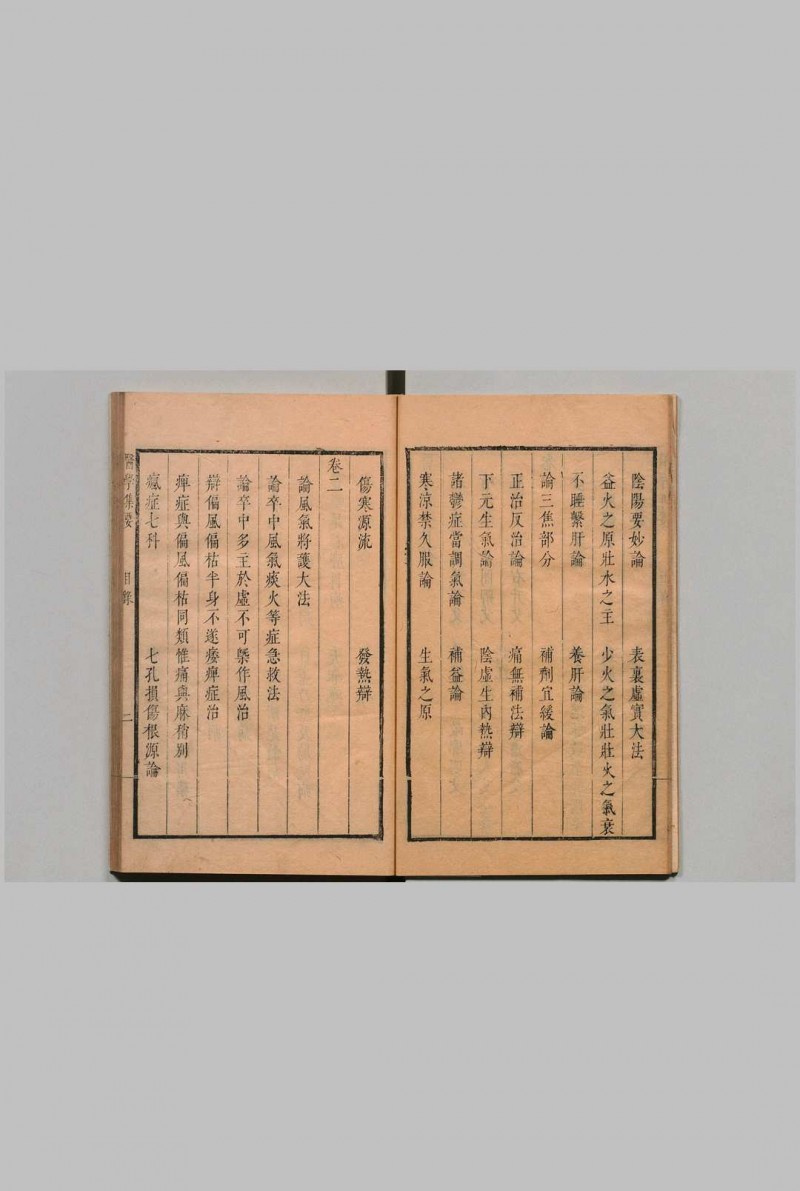 陰陽要妙論 表裏虛實大法
益火之原壯水之主 少火之氣壯壯火之氣衰
不睡繫肝論 養肝論
論三焦部分 補劑宜緩論
正治反治論 痛無補法辯
下元生氣論 陰虛生內熱辯
諸鬱症當調氣論 補益論
寒涼禁久服論 生氣之原
傷寒源流 發熱辯
卷二
論風氣將護大法
論卒中風氣痰火等症急救法
論卒中多主於虛不可槩作風治
辯偏風偏枯半身不遂痿痺症治
痺症與偏風偏枯同類惟痛與麻稍別
瘋症七科 七孔損傷根源論
醫學集要 目錄 二